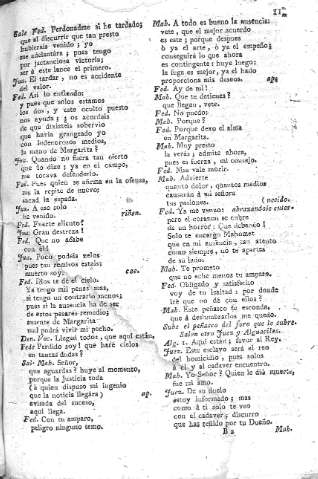 11
Sale Fed. Perdonadme si he tardado;
que al discurrir que tan presto
hubierais venido; yo
me adelantára; pues tengo
por jactanciosa victoria;
ser à este lance el primero.
Juan. El tardar, no es accidente
del valor.
Fed. Asi lo entiendo:
y pues que solos estamos
los dos, y este oculto puesto
nos ayuda; os acordais
de que dixisteis sobervio
que havia grangeado yo
con indecorosos medios,
la mano de Margarita?
Juan. Quando no fuera tan cierto
que lo dixe; ya en el campo,
me tocava defenderlo.
Fed. Pues quien se afirma en la ofensa,
no la repita de nuevo;
sacad la espada.
Juan. A eso solo
he venido. riñen.
Fed. Fuerte aliento!
Juan. Grau destreza!
Fed. Que no acabe
con él!
Juan. Poco podeis zelos
pues tan remisos estais:
muerto soy. cae.
Fed. Dios te dé el cielo.
Ya tengo mil penas mas,
si tengo un contrario menos;
pues si la ausencia ha de ser
de estos pesares remedio;
ausente de Margarita
mal podrá vivir mi pecho.
Den. Voc. Llegad todos, que aqui están.
Fede Perdido soy! qué haré cielos
en tantas dudas?
Sal. Mah. Señor,
que aguardas? huye al momento,
porque la Justicia toda
(à quien dispuso mi ingenio
que la noticia llegára) ap.
avisada del suceso,
aqui llega.
Fed. Con tu amparo,
peligro ninguno temo.
Mah. A todo es bueno la ausencia:
vete, que el mejor acuerdo
es este; porque despues
ò ya el arte, ò ya el empeño;
conseguirá lo que ahora
es contingente; huye luego;
la fuga es mejor, ya el hado
proporciona deseos. ap.
Fed. Ay de mi!
Mah. Que te detienes?
que llegan, vete.
Fed. No puedo:
Mah. Porque?
Fed. Porque dexo el alma
en Margarita.
Mah. Muy presto
la verás; admite ahora,
pues es fuerza, mi consejo.
Fed. Mas vale morir.
Mah. Advierte
quanto dolor, quantos medios
causarán à mi señora
tus pasiones. (necido.
Fed. Ya me venzo: abrazandole enter-
pero el corazon se cubre
de un horror: Que debaneo!
Solo te encargo Mahomet
que en mi ausencia, tan atento
como siempre, no te apartes
de su lado.
Mah. Yo prometo
que no eche menos tu amparo.
Fed. Obligado y satisfecho
voy de tu lealtad: por donde
iré que no dé con ellos?
Mah. Este peñasco te esconde,
que à deslumbrarlos me quedo.
Sube el peñasco del foro que le cubre.
Salen otro Juez y Alguaciles.
Alg. 1. Aqui están; favor al Rey.
Juez. Este esclavo será el reo
del homicidio, pues solos
à él y al cadaver encuentro.
Mah. Yo Señor? Quien le dió muerte,
fue mi amo.
Juez. De su duelo
estoy informado; mas
como à ti solo te veo
con el cadaver; discurro
que has reñido por tu Dueño.
B 2 Mah.